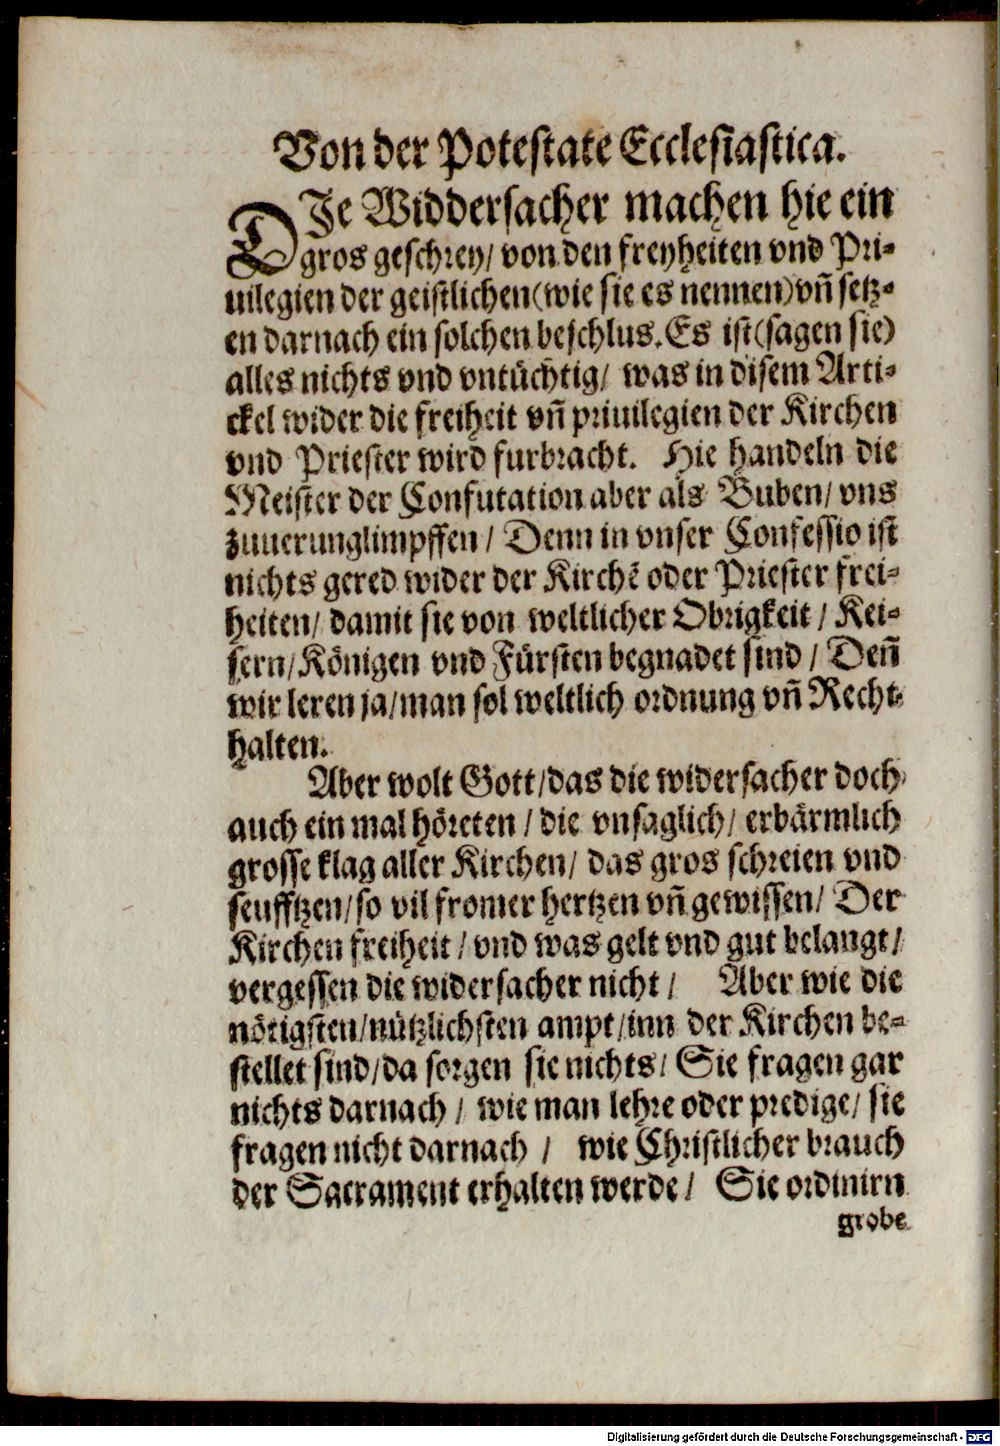 Von der Potestate Ecclesiastica.
DIe Widdersacher machen hie ein
gros geschrey/ von den freyheiten vnd Pri-
uilegien der geistlichen(wie sie es nennen)vñ setz-
en darnach ein solchen beschlus. Es ist(sagen sie)
alles nichts vnd vntüchtig/ was in disem Arti-
ckel wider die freiheit vñ priuilegien der Kirchen
vnd Priester wird furbracht. Hie handeln die
Meister der Confutation aber als Buben/ vns
zuuerunglimpffen/ Denn in vnser Confessio ist
nichts gered wider der Kirchẽ oder Priester frei-
heiten/ damit sie von weltlicher Obrigkeit/ Kei-
sern/Königen vnd Fürsten begnadet sind/ Deñ
wir leren ja/man sol weltlich ordnung vñ Recht
halten.
Aber wolt Gott/das die widersacher doch
auch ein mal höreten/ die vnsaglich/ erbärmlich
grosse klag aller Kirchen/ das gros schreien vnd
seufftzen/so vil fromer hertzen vñ gewissen/ Der
Kirchen freiheit/ vnd was gelt vnd gut belangt/
vergessen die widersacher nicht/ Aber wie die
nötigsten/nützlichsten ampt/inn der Kirchen be-
stellet sind/da sorgen sie nichts/ Sie fragen gar
nichts darnach/ wie man lehre oder predige/ sie
fragen nicht darnach/ wie Christlicher brauch
der Sacrament erhalten werde/ Sie ordinirn
grobe
Digitalisierung gefördert durch die Deutsche Forschungsgemeinschaft - DFG